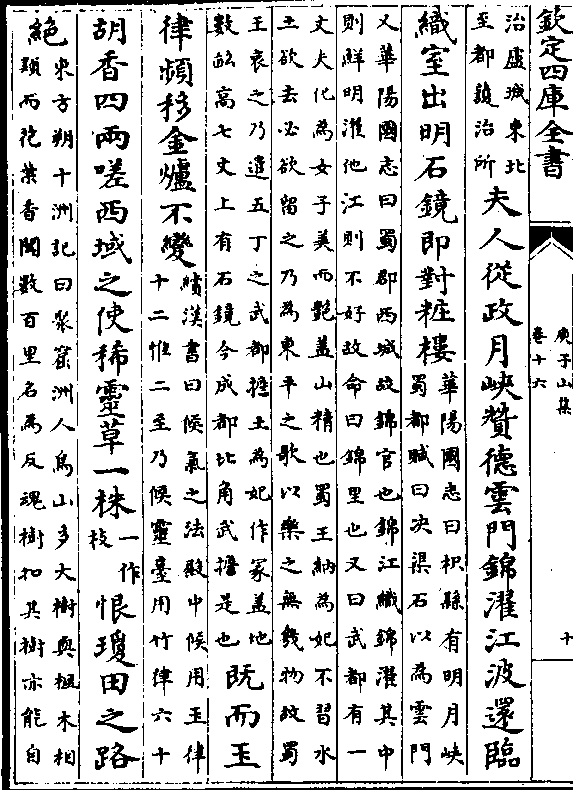 欽定四庫全書
庾子山集
卷十六
十
治盧城東北
至都護治所
夫人從政月峽贊德雲門錦濯江波還臨
織室出明石鏡即對粧樓
華陽國志曰枳縣有明月峽
蜀都賦曰决渠石以為雲門
又華陽國志曰蜀郡西城故錦官也錦江織錦濯其中
則鮮明濯他江則不好故命曰錦里也又曰武都有一
丈夫化為女子美而艷蓋山精也蜀王納為妃不習水
土欲去必欲留之乃為東平之歌以樂之無幾物故蜀
王哀之乃遣五丁之武都擔土為妃作冢蓋地
數畝高七丈上有石鏡今成都北角武擔是也
既而玉
律頻移金爐不變
續漢書曰候氣之法殿中候用玉律
十二惟二至乃候靈臺用竹律六十
胡香四兩嗟西域之使稀靈草一株
一作
枝
恨瓊田之路
絶
東方朔十洲記曰聚窟洲人鳥山多大樹與楓木相
類而花葉香聞數百里名為反魂樹扣其樹亦能自